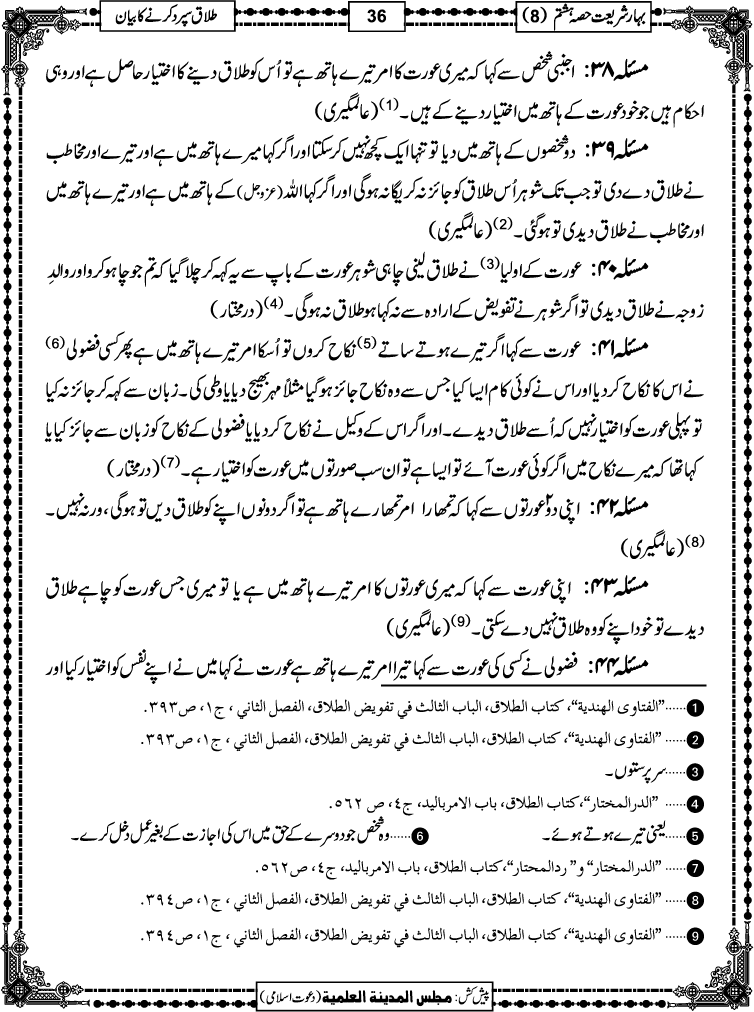 بہار شریعت حصہ ہشتم (8)
36
طلاق سپرد کرنے کا بیان
مسئلہ ۳۸: اجنبی شخص سے کہا کہ میری عورت کا امر تیرے ہاتھ ہے تو اُس کو طلاق دینے کا اختیار حاصل ہے اور وہی
احکام ہیں جو خود عورت کے ہاتھ میں اختیار دینے کے ہیں۔(1) (عالمگیری)
مسئلہ ۳۹: دو شخصوں کے ہاتھ میں دیا تو تنہا ایک کچھ نہیں کرسکتا اور اگر کہا میرے ہاتھ میں ہے اور تیرے اور مخاطب
نے طلاق دے دی تو جب تک شوہر اُس طلاق کو جائز نہ کریگا نہ ہوگی اور اگر کہا اللہ (عزوجل) کے ہاتھ میں ہے اور تیرے ہاتھ میں
اور مخاطب نے طلاق دیدی تو ہوگئی۔(2) (عالمگیری)
مسئلہ ۴۰: عورت کے اولیا(3) نے طلاق لینی چاہی شوہر عورت کے باپ سے یہ کہہ کر چلا گیا کہ تم جو چاہو کرو اور والدِ
زوجہ نے طلاق دیدی تو اگر شوہر نے تفویض کے ارادہ سے نہ کہا ہو طلاق نہ ہوگی۔(4) (درمختار)
مسئلہ ۴۱: عورت سے کہا اگر تیرے ہوتے ساتے(5) نکاح کروں تو اسکا امر تیرے ہاتھ میں ہے پھر کسی فضولی(6)
نے اس کا نکاح کر دیا اور اس نے کوئی کام ایسا کیا جس سے وہ نکاح جائز ہوگیا مثلاً مہر بھیج دیا یا وطی کی۔ زبان سے کہہ کر جائز نہ کیا
تو پہلی عورت کو اختیار نہیں کہ اُسے طلاق دیدے۔ اور اگر اس کے وکیل نے نکاح کر دیا یا فضولی کے نکاح کو زبان سے جائز کیا یا
کہا تھا کہ میرے نکاح میں اگر کوئی عورت آئے تو ایسا ہے تو ان سب صورتوں میں عورت کو اختیار ہے۔(7) (درمختار)
مسئلہ ۴۲: اپنی دو۲ عورتوں سے کہا کہ تمھارا امر تمھارے ہاتھ ہے تو اگر دونوں اپنے کو طلاق دیں تو ہوگی، ورنہ نہیں۔
(8) (عالمگیری)
مسئلہ ۴۳: اپنی عورت سے کہا کہ میری عورتوں کا امر تیرے ہاتھ میں ہے یا تو میری جس عورت کو چاہے طلاق
دیدے تو خود اپنے کو وہ طلاق نہیں دے سکتی۔(9) (عالمگیری)
مسئلہ ۴۴: فضولی نے کسی کی عورت سے کہا تیرا امر تیرے ہاتھ ہے عورت نے کہا میں نے اپنے نفس کو اختیار کیا اور
1......"الفتاوی الهندية"، كتاب الطلاق، الباب الثالث في تفويض الطلاق، الفصل الثاني ، ج١، ص٣٩٣.
2...... "الفتاوی الهندية"، كتاب الطلاق، الباب الثالث في تفويض الطلاق، الفصل الثاني ، ج١، ص٣٩٣.
3......سرپرستوں۔
4...... "الدرالمختار"،كتاب الطلاق، باب الامرباليد، ج٤، ص ٥٦٢.
5......یعنی تیرے ہوتے ہوئے۔ 6......وہ شخص جو دوسرے کے حق میں اس کی اجازت کے بغیر عمل دخل کرے۔
7...... "الدرالمختار" و" ردالمحتار"،كتاب الطلاق، باب الامرباليد، ج٤، ص٥٦٢.
8...... "الفتاوی الهندية"، كتاب الطلاق، الباب الثالث في تفويض الطلاق، الفصل الثاني ، ج١، ص٣٩٤.
9...... "الفتاوی الهندية"، كتاب الطلاق، الباب الثالث في تفويض الطلاق، الفصل الثاني ، ج١، ص٣٩٤.
پیش کش: مجلس المدینة العلمیة (دعوت اسلامی)